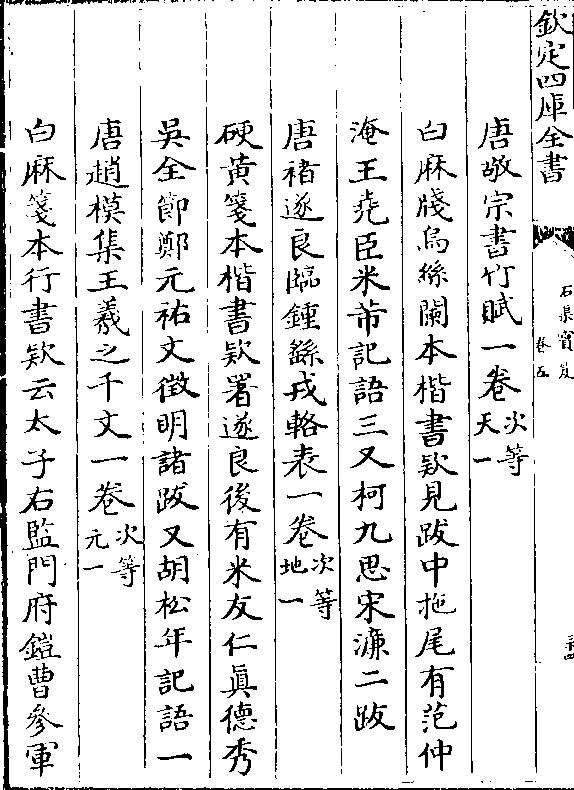 欽定四庫全書
石渠寶笈
卷五
唐敬宗書竹賦一卷次等天一
白麻牋烏絲闌本楷書欵見跋中拖尾有范仲
淹王堯臣米芾記語三又柯九思宋濂二跋
唐褚遂良臨鍾繇戎輅表一卷次等地一
硬黃箋本楷書欵署遂良後有米友仁真德秀
吳全節鄭元祐文徵明諸跋又胡松年記語一
唐趙模集王羲之千文一卷次等元一
白麻箋本行書欵云太子右監門府鎧曹參軍